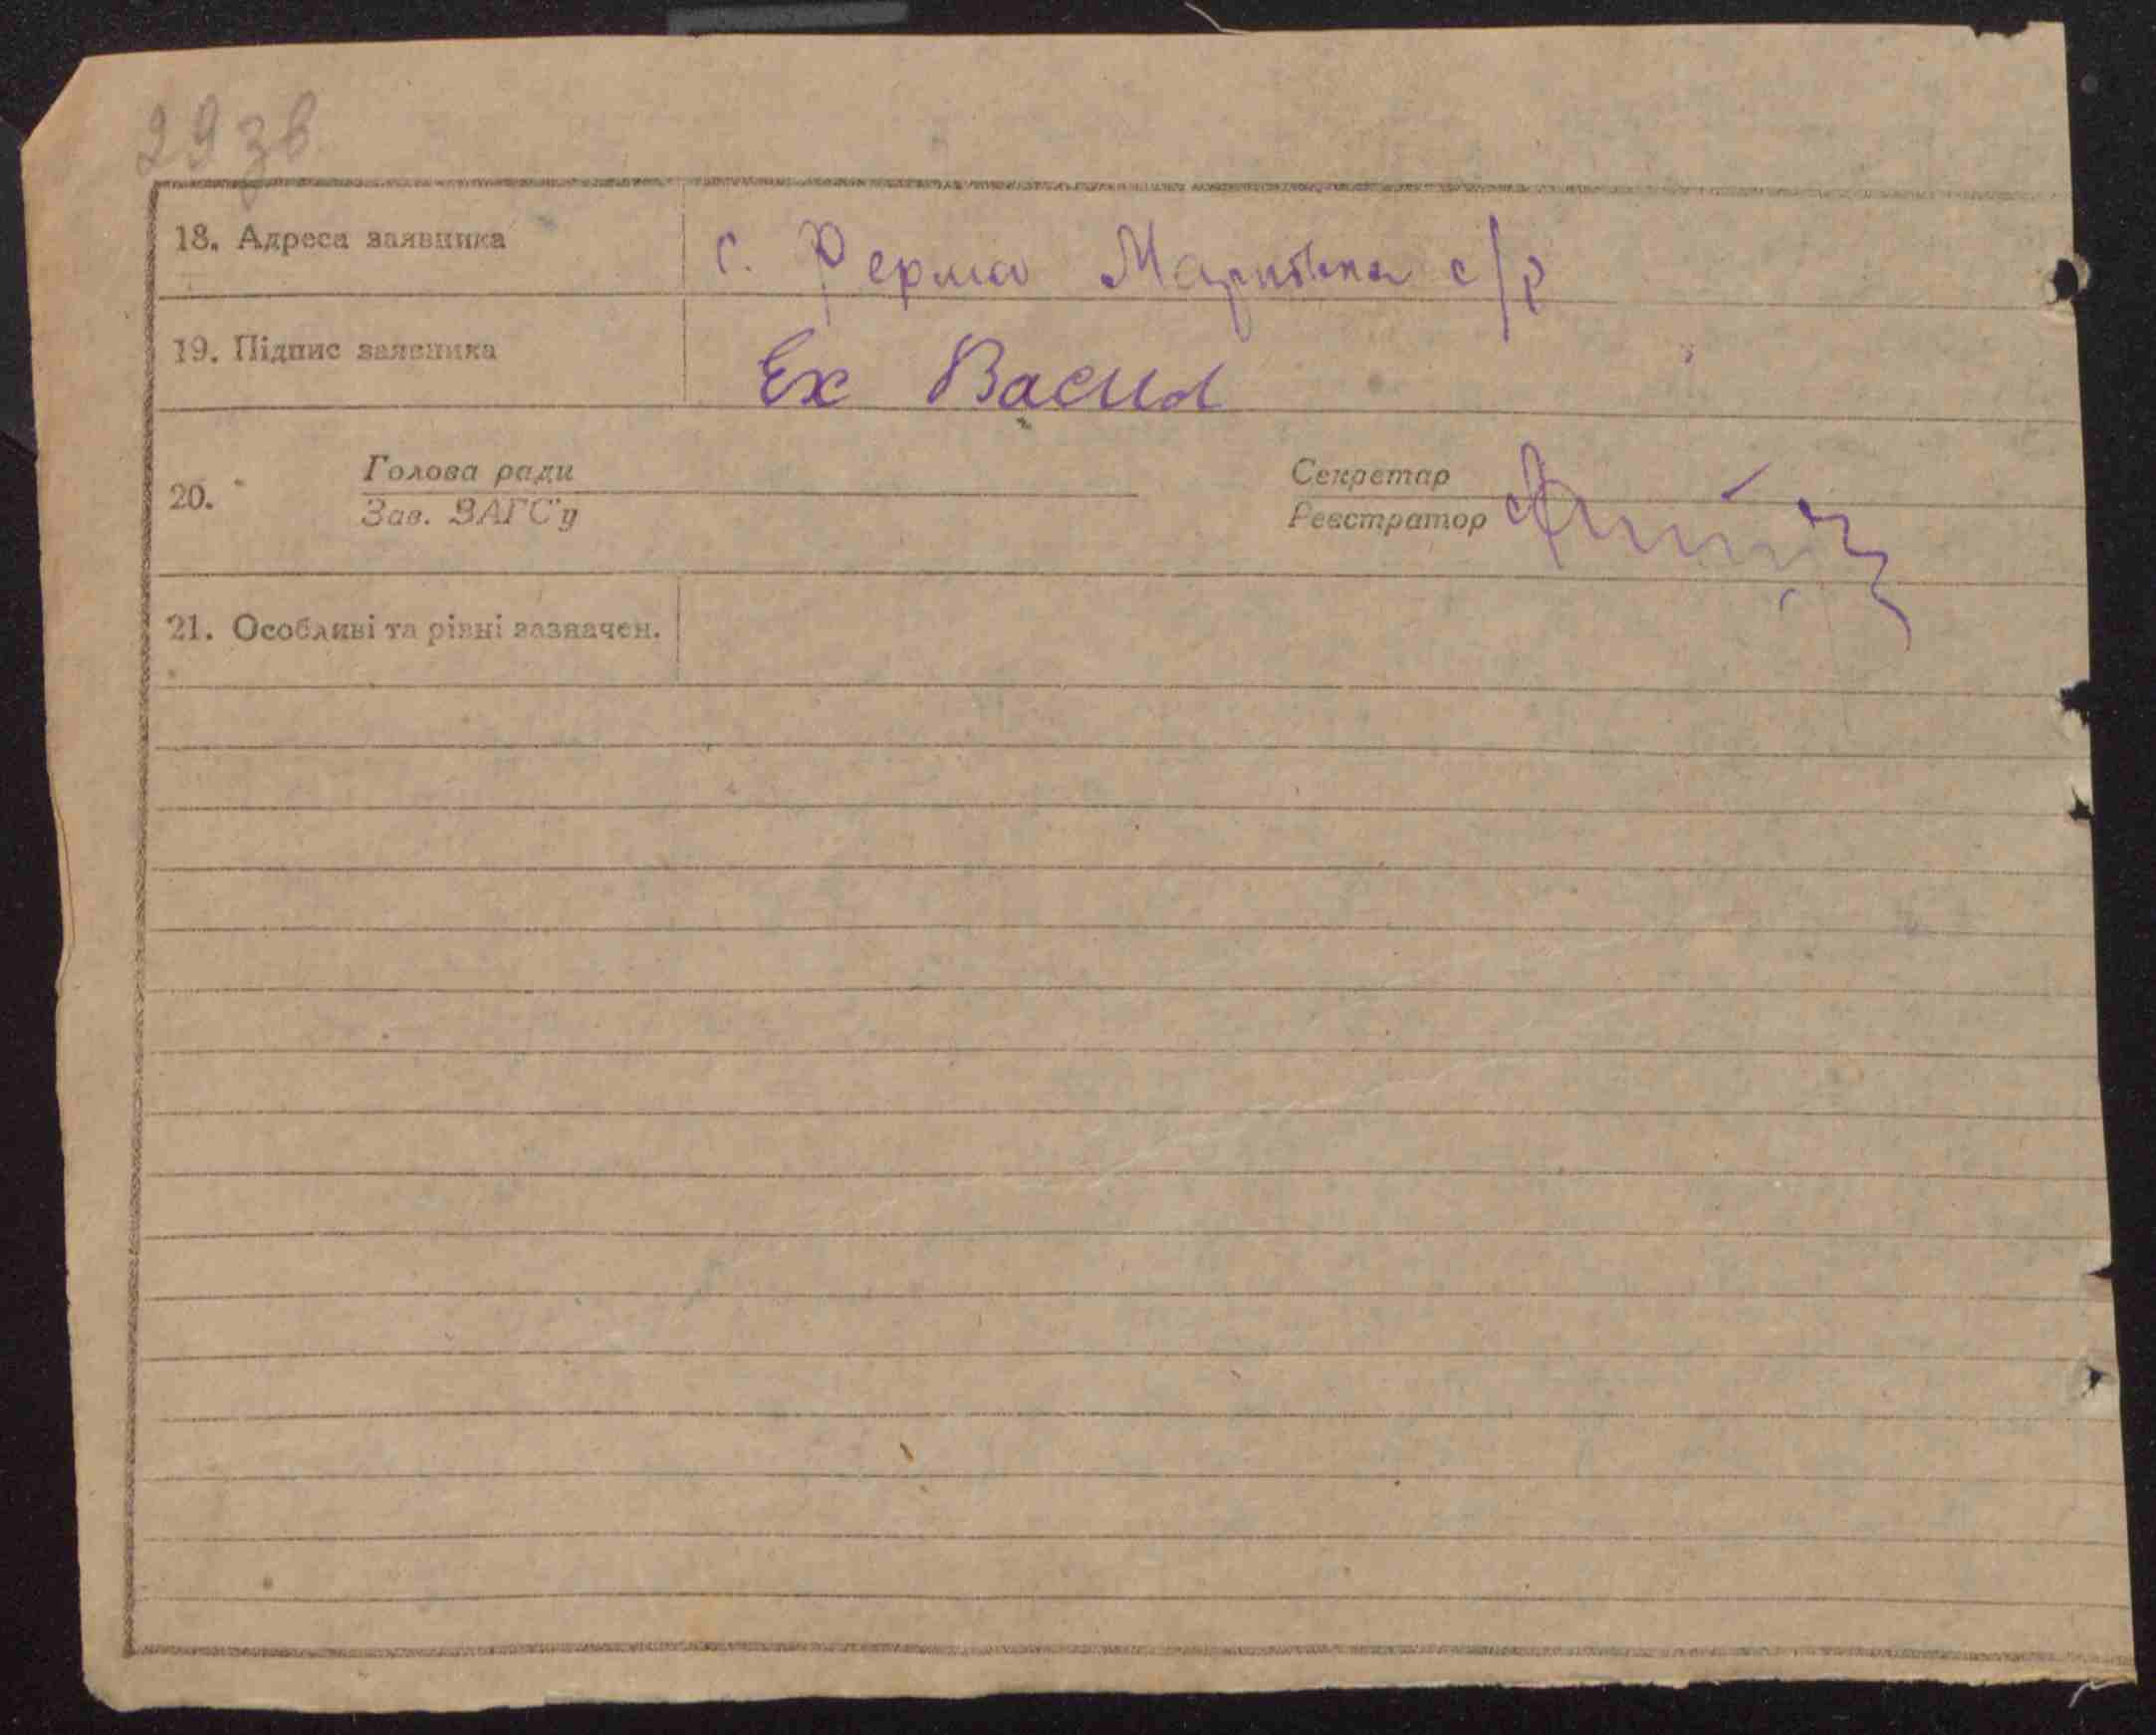 29 зв
18. Адреса заявника с. Ферма с/р
19. Підпис заявника Ех Васил
20. Голова ради Секретар
Зав. ЗАГС'у Реєстратор
21. Особливі та різні зазначен.